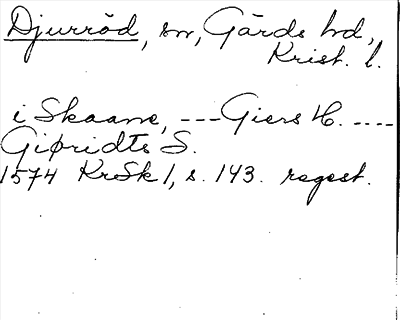 Djurröd, sn, Gärds hd,
Krist. l.
i Skaane, --- Giers H. ----
Giøridts S.
1574 KrSk 1, s. 143. regest.